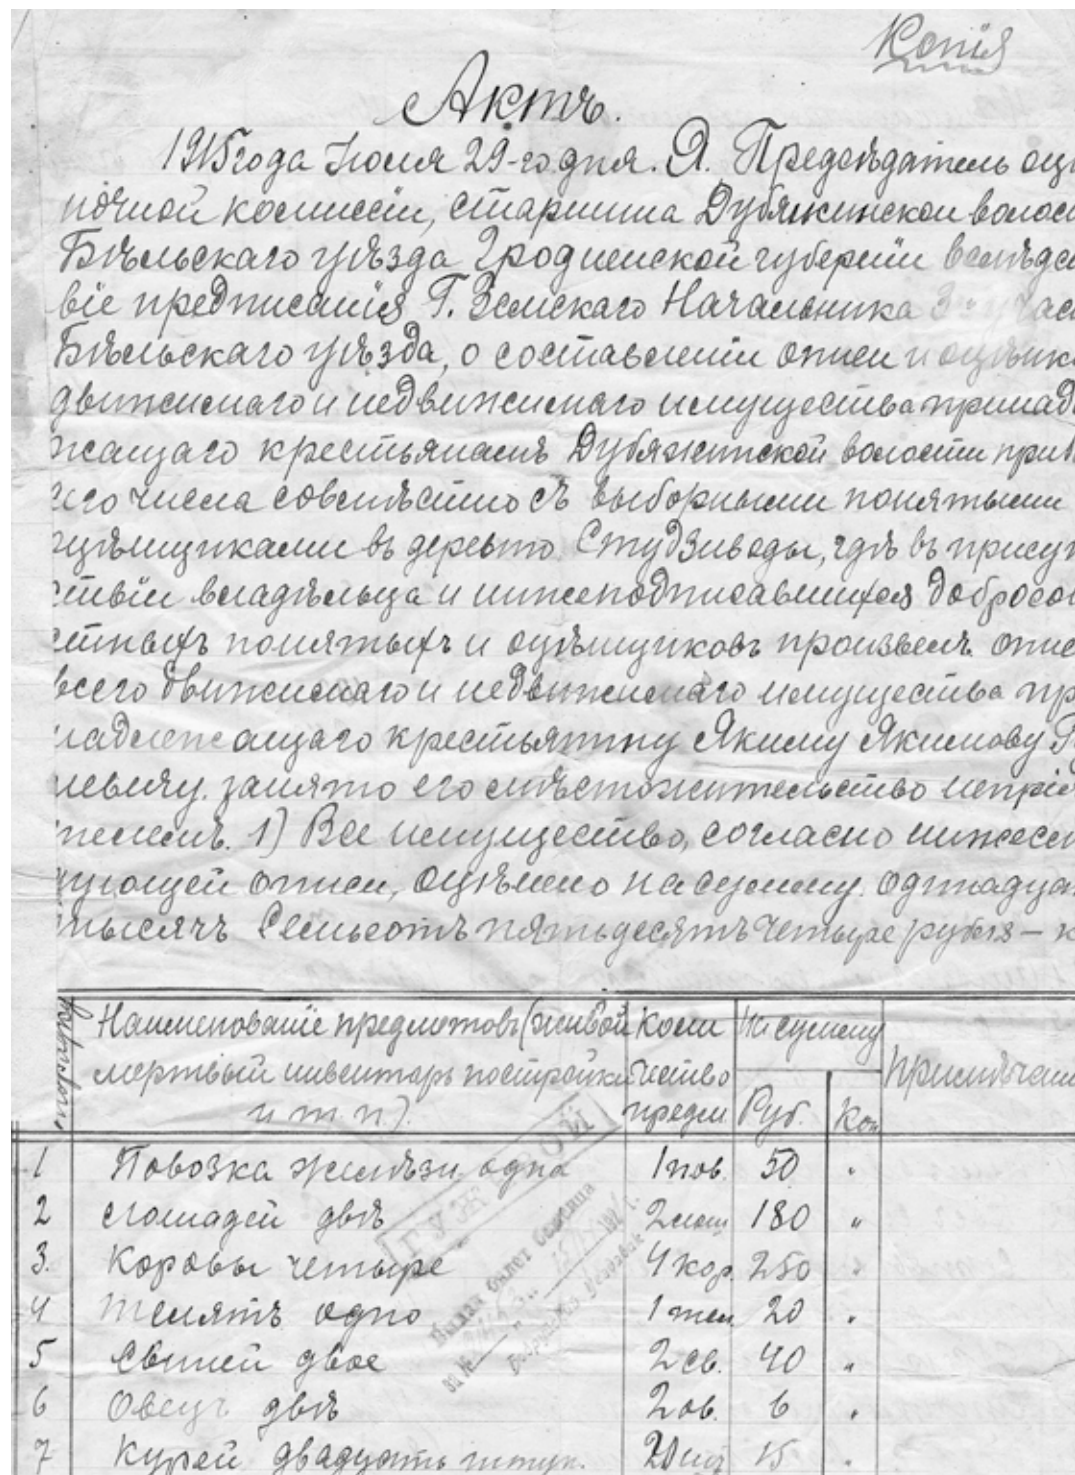 Копія
Актъ.
1915 года Іюля 29-го дня. Я. Предсѣдатель оцѣ
ночной коммиссіи, старшина Дубяжинской волос
Бѣльскаго уѣзда Гродненской губерніи вслѣдс
віе предписанія Г. Земскаго Начальника 3 час
Бѣльскаго уѣзда, о составленіи описи и оцѣнк
движимаго и недвижимаго имущества принад
жащаго крестьянамъ Дубяжинской волости приб
его числа совмѣстно съ выборными понятыми
оцѣнщиками въ деревню Студзиводы, гдѣ въ присут
ствіи владѣльца и нижеподписавшихся добросов
стныхъ понятыхъ и оцѣнщиковъ произвелъ опис
всего движимаго и недвижимаго имущества пр
надлежащаго крестьянину Якиму Якимову
левичу. занято его мѣстожительство непрія
телемъ. 1) Все имущество, согласно нижеслѣ
дующей описи, оцѣнено на сумму. одинадца
тысячъ Семьсотъ пятьдесятъ четыре рубля — к
Наименованіе предметовъ (живой Коли На сумму
мертвый инвентарь постройки чество Примѣчані
и т. п.). предм. Руб. Коп
1 Повозка желѣзн. одна 1 пов. 50 "
2 лошадей двѣ 2 лош 180 "
3. Коровы четыре 4 кор. 250 "
4 Телятъ одно 1 тел. 20 "
5 Свиней двое 2 св. 40 "
6 Овецъ двѣ 2 ов. 6 "
7 Курей двадцать штук. 20 шт 15 "
Выдан билет
за №